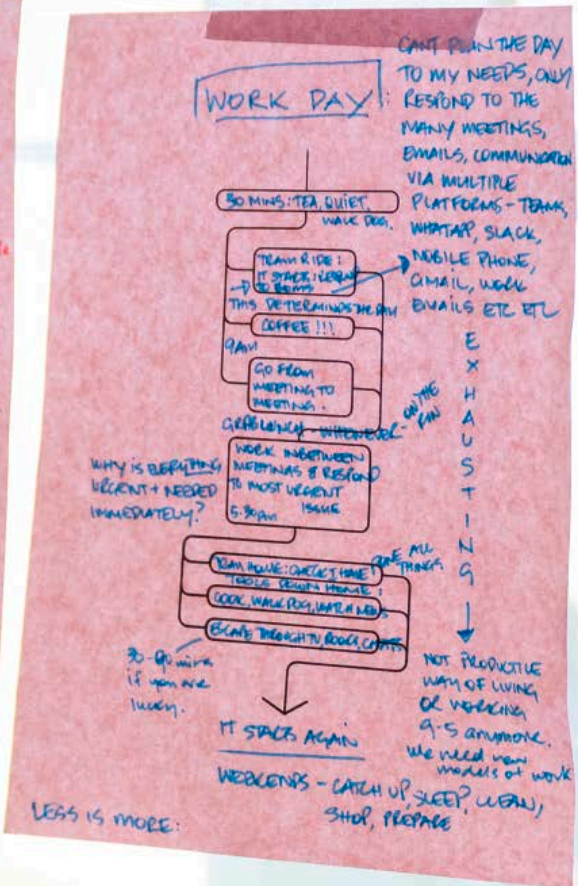 WORK DAY
CANT PLAN THE DAY
TO MY NEEDS, ONLY
RESPOND TO THE
MANY MEETINGS,
EMAILS, COMMUNICATION
VIA MULTIPLE
PLATFORMS - TEAMS,
WHATAPP, SLACK,
MOBILE PHONE,
GMAIL, WORK
EMAILS ETC ETC
EXHAUSTING
NOT PRODUCTIVE
WAY OF LIVING
OR WORKING
9-5 anymore.
we need new
models of work
30 MINS: TEA, QUIET,
WALK DOG.
TRAIN RIDE:
IT STARTS: RESPOND
TO EMAILS
THIS DETERMINDS THE DAY
COFFEE !!!
9AM
GO FROM
MEETING TO
MEETING.
GRAB LUNCH - WHENEVER - ON THE
RUN
WORK INBETWEEN
MEETINGS & RESPOND
TO MOST URGENT
ISSUE
5.30pm
WHY IS EVERYTHING
URGENT + NEEDED
IMMEDIATELY?
TRAIN HOME: CHECK I HAVE
DONE ALL
THINGS
TOOLS DOWN HOME:
COOK, WALK DOG, WATCH NEWS
ESCAPE THROUGH TV, BOOKS,
30-90 mins
if you are
lucky.
IT STARTS AGAIN
WEEKENDS - CATCH UP, SLEEP, CLEAN,
SHOP, PREPARE
LESS IS MORE: